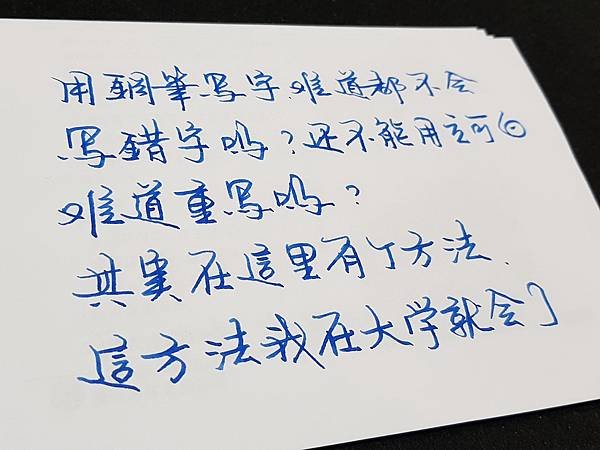 用鋼筆写字难道都不会
写錯字吗?还不能用立可白
难道重写吗?
其実在這里有个方法.
這方法我在大学就会了